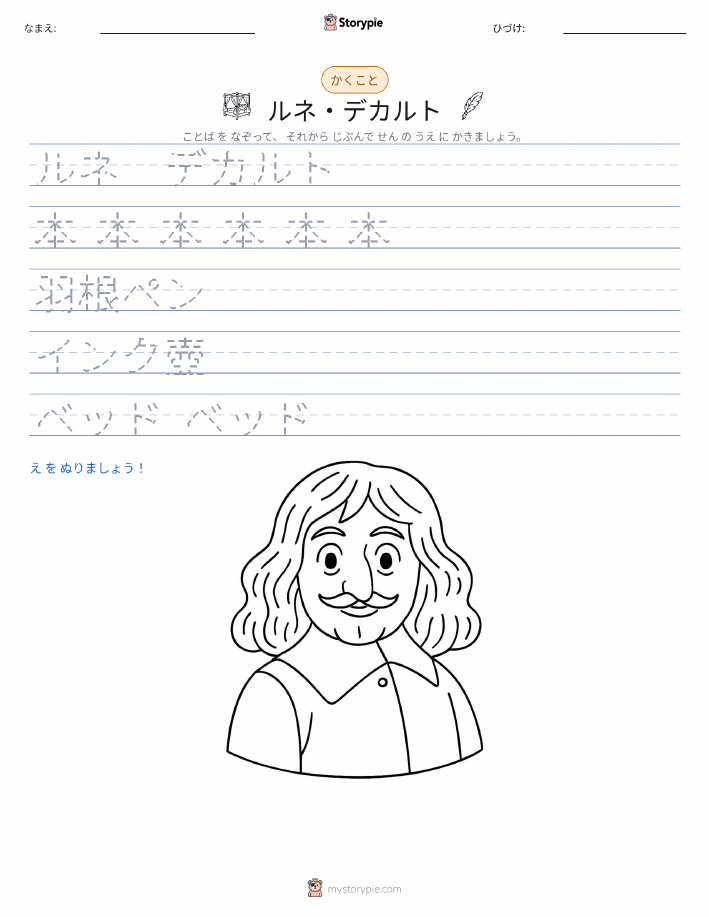 なまえ:
Storypie
ひづけ:
かくこと
ルネ・デカルト
ことば を なぞって、 それから じぶんで せん の うえ に かきましょう。
ルネ デカルト
本 本 本 本 本 本
羽根ペン
インク壺
ベッド ベッド
え を ぬりましょう！
mystorypie.com